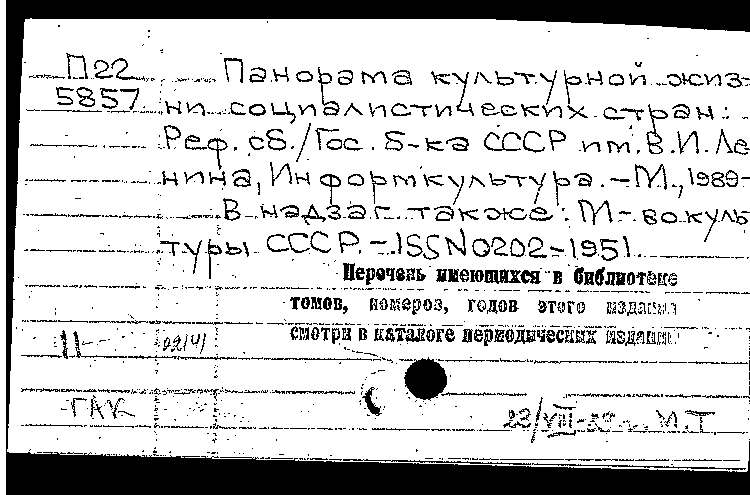 П22 Панорама культурной жиз-
5857 ни социалистических стран:
Реф. сб./Гос. б-ка СССР им. В.И. Ле
нина, Информкультура. – М., 1989-
В надзаг. также: М-во куль
туры СССР. – ISSN 0202-1951
Перечень имеющихся в библиотеке
томов, номеров, годов этого издания
смотри в каталоге периодических изданий
11-
ГАК
М.Т